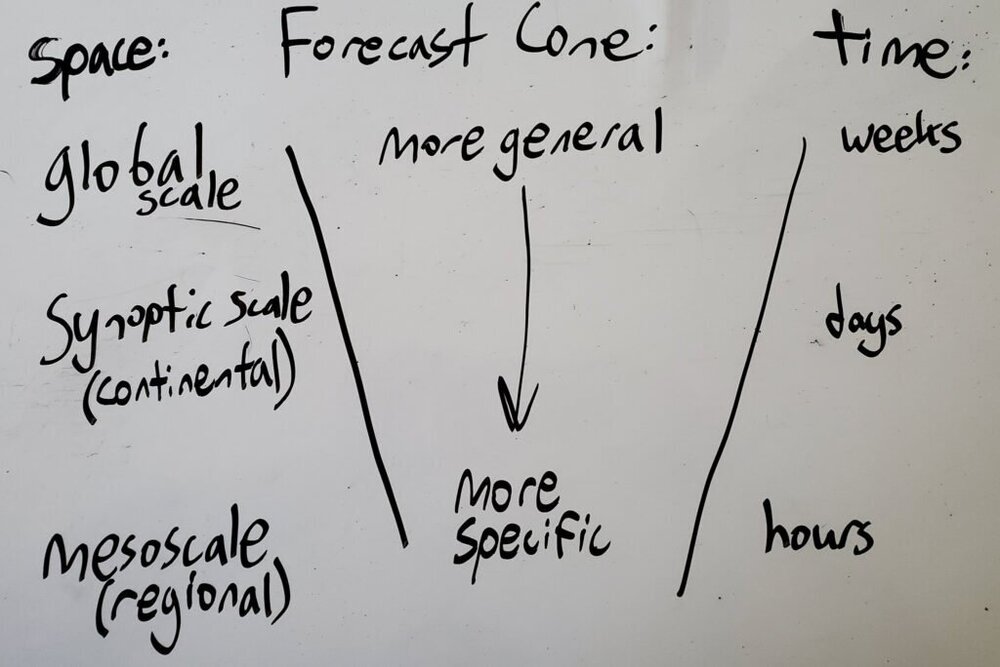 Space:
Forecast Cone:
Time:
global
scale
more general
weeks
Synoptic scale
(continental)
days
mesoscale
(regional)
more
specific
hours